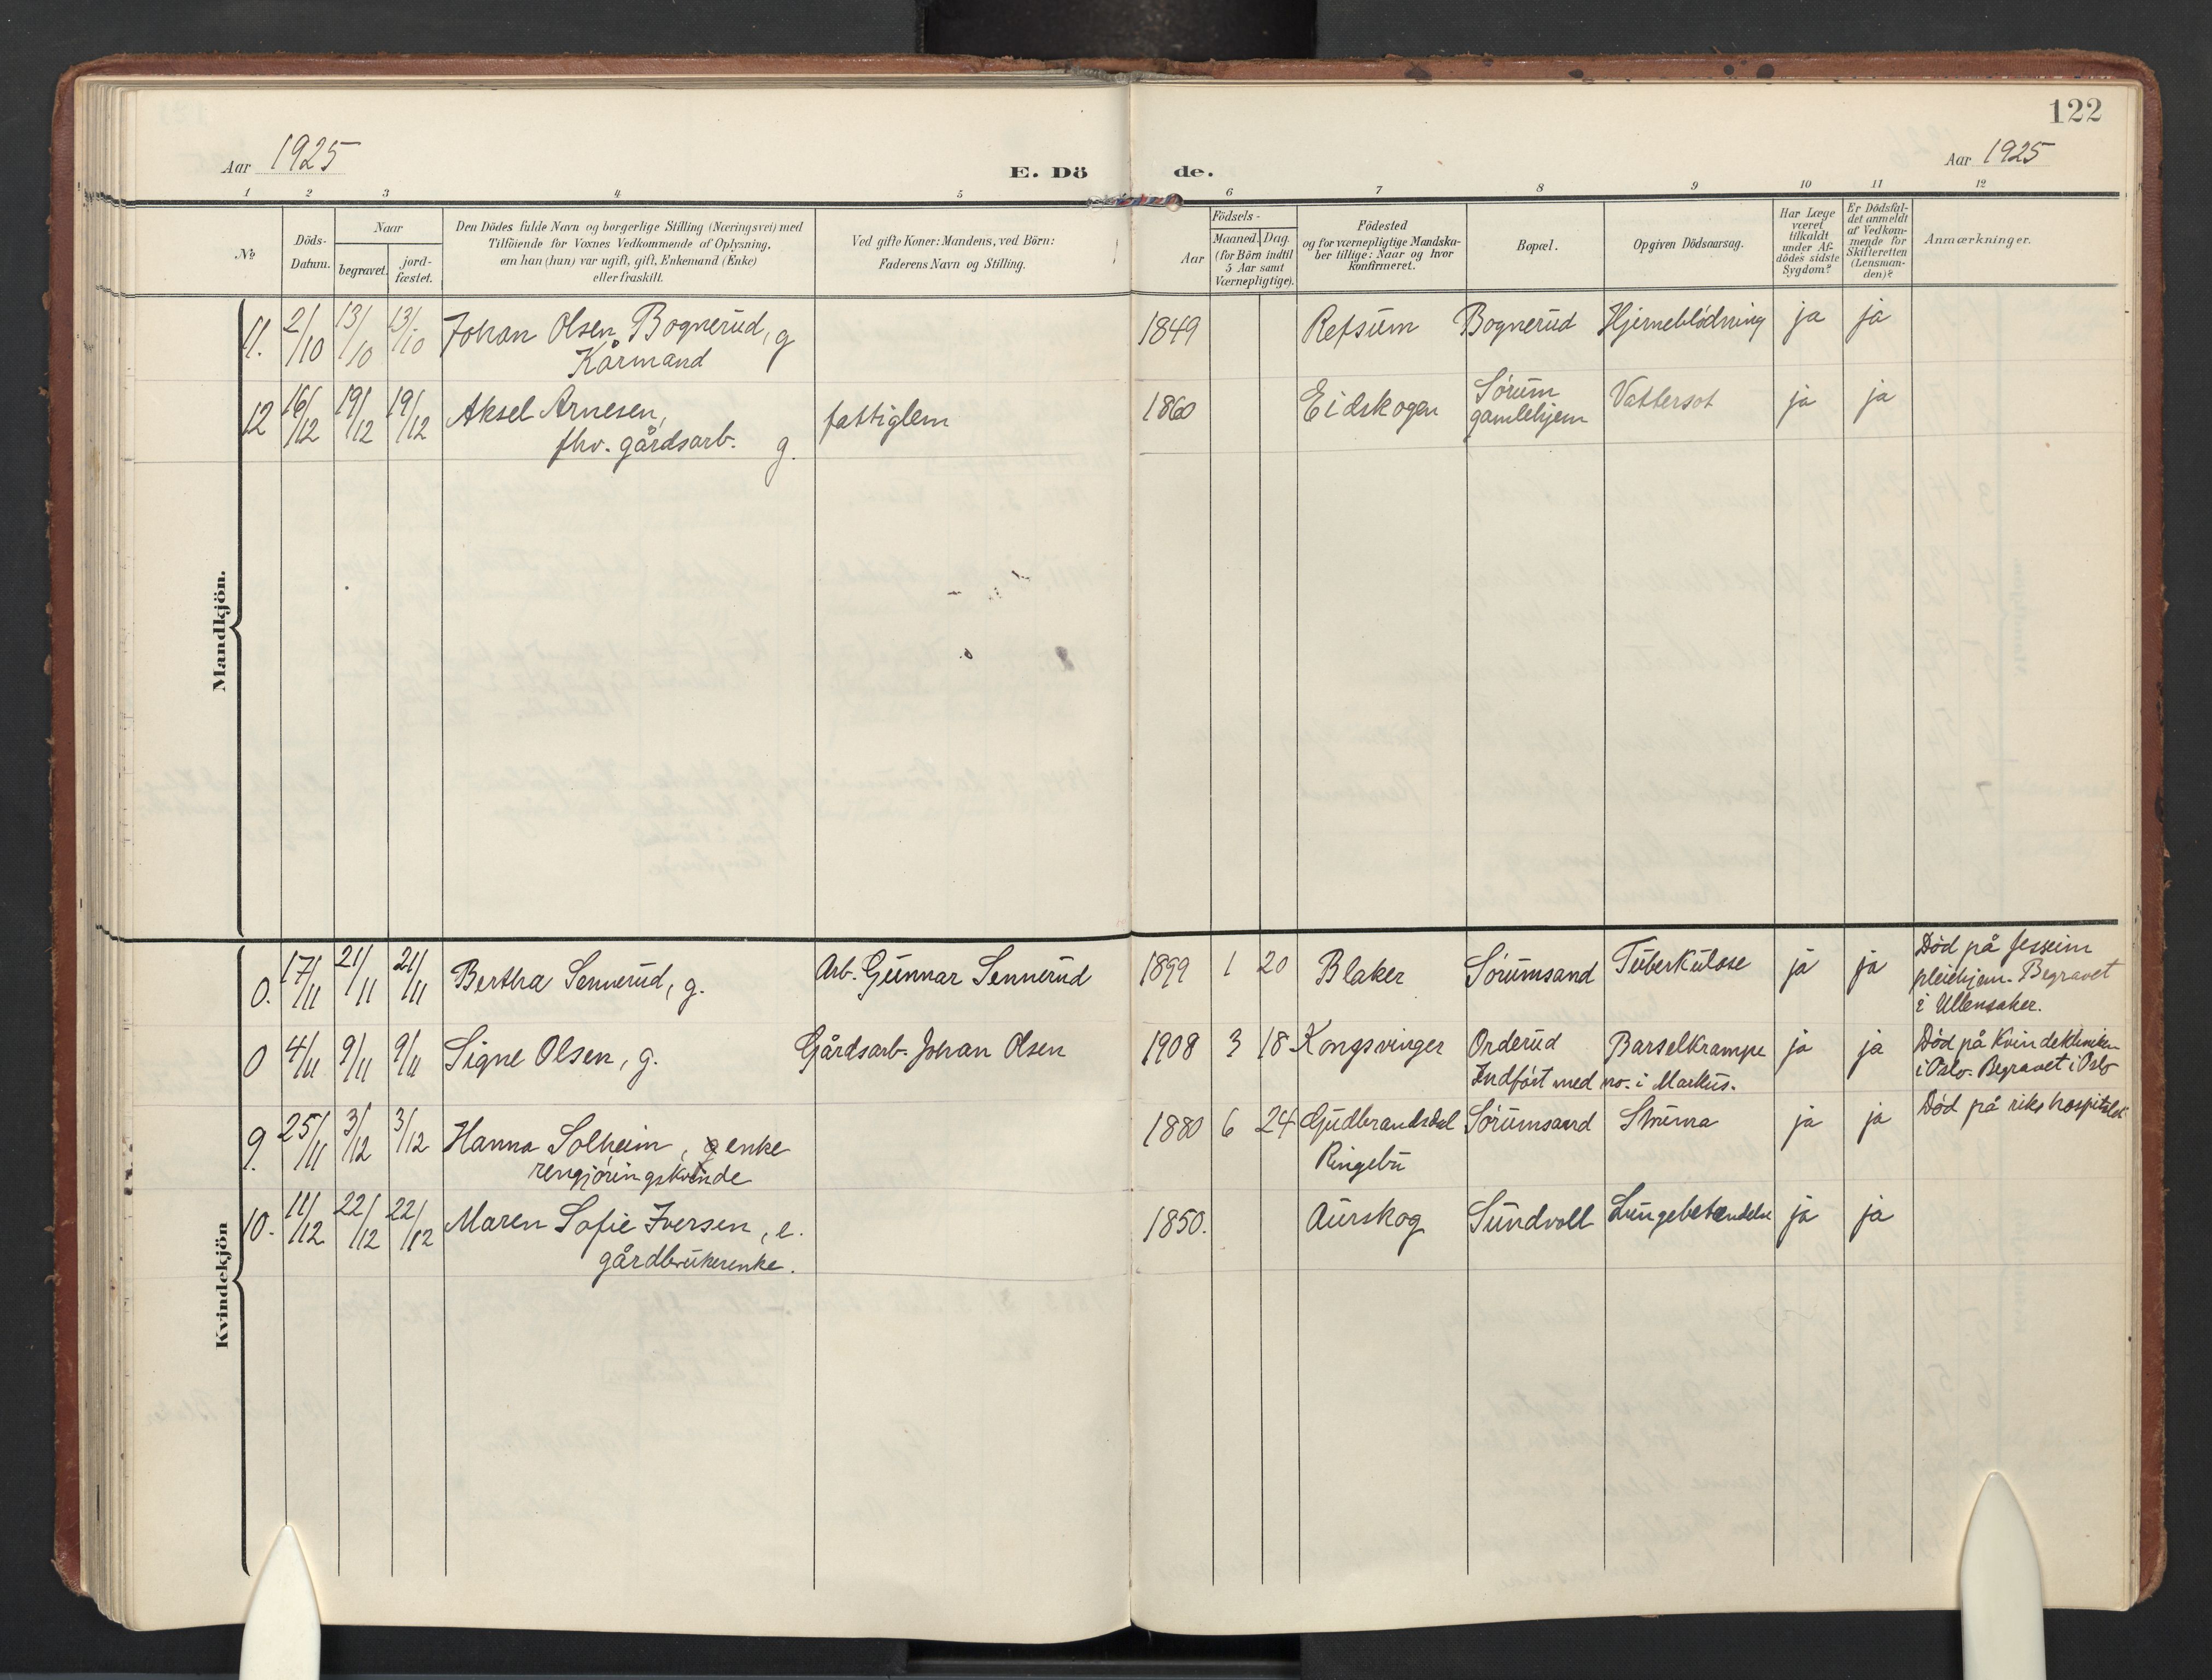 122
Aar 1925
E. Dö de.
Aar 1925
1 2 3 4 5 6 7 8 9 10 11 12
No
Döds-Datum.
Naar
begravet.
jord-fæstet.
Den Dödes fulde Navn og borgerlige Stilling (Næringsvei) med
Tilföiende for Voxnes Vedkommende af Oplysning,
om han (hun) var ugift, gift, Enkemand (Enke)
eller fraskilt.
Ved gifte Koner: Mandens, ved Börn:
Faderens Navn og Stilling.
Födsels-
Aar
Maaned. Dag.
(for Börn indtil
5 Aar samt
Værnepligtige).
Födested
og for værnepligtige Mandska-
ber tillige: Naar og hvor
konfirmeret.
Bopæl.
Opgiven Dödsaarsag.
Har Læge
været
tilkaldt
under Af-
dödes sidste
Sygdom?
Er Dödsfal-
det anmeldt
af Vedkom-
mende for
Skifteretten
(Lensman-
den)?
Anmærkninger.
Mandkjön.
11. 2/10 13/10 13/10 Johan Olsen Bognerud, g 1849 Refsum Bognerud Hjerneblødning ja ja
Kårmand
12 16/12 19/12 19/12 Aksel Arnesen, fattiglem 1860 Eidskogen Sørum Vattersot ja ja
fhv. gårdsarb. g. gamlehjem
Kvindekjön
0. 17/11 21/11 21/11 Bertha Sennerud, g. Arb. Gunnar Sennerud 1899 1 20 Blaker Sørumsand Tuberkulose ja ja Død på Jessheim
pleiehjem. Begravet
i Ullensaker.
0 4/11 9/11 9/11 Signe Olsen, g. Gårdsarb. Johan Olsen 1908 3 18 Kongsvinger Orderud Barselkrampe ja ja Død på Kvindekliniken
Indført med no. i Markus. i Oslo. Begravet i Oslo
9. 25/11 3/12 3/12 Hanna Solheim, g enke 1880 6 24 Gudbrandsdal Sørumsand Struma ja ja Død på rikshospitalet
rengjøringskvinde Ringebu
10. 11/12 22/12 22/12 Maren Sofie Iversen, e. 1850. Aurskog Sundvoll Lungebetændelse ja ja
gårdbrukerenke.